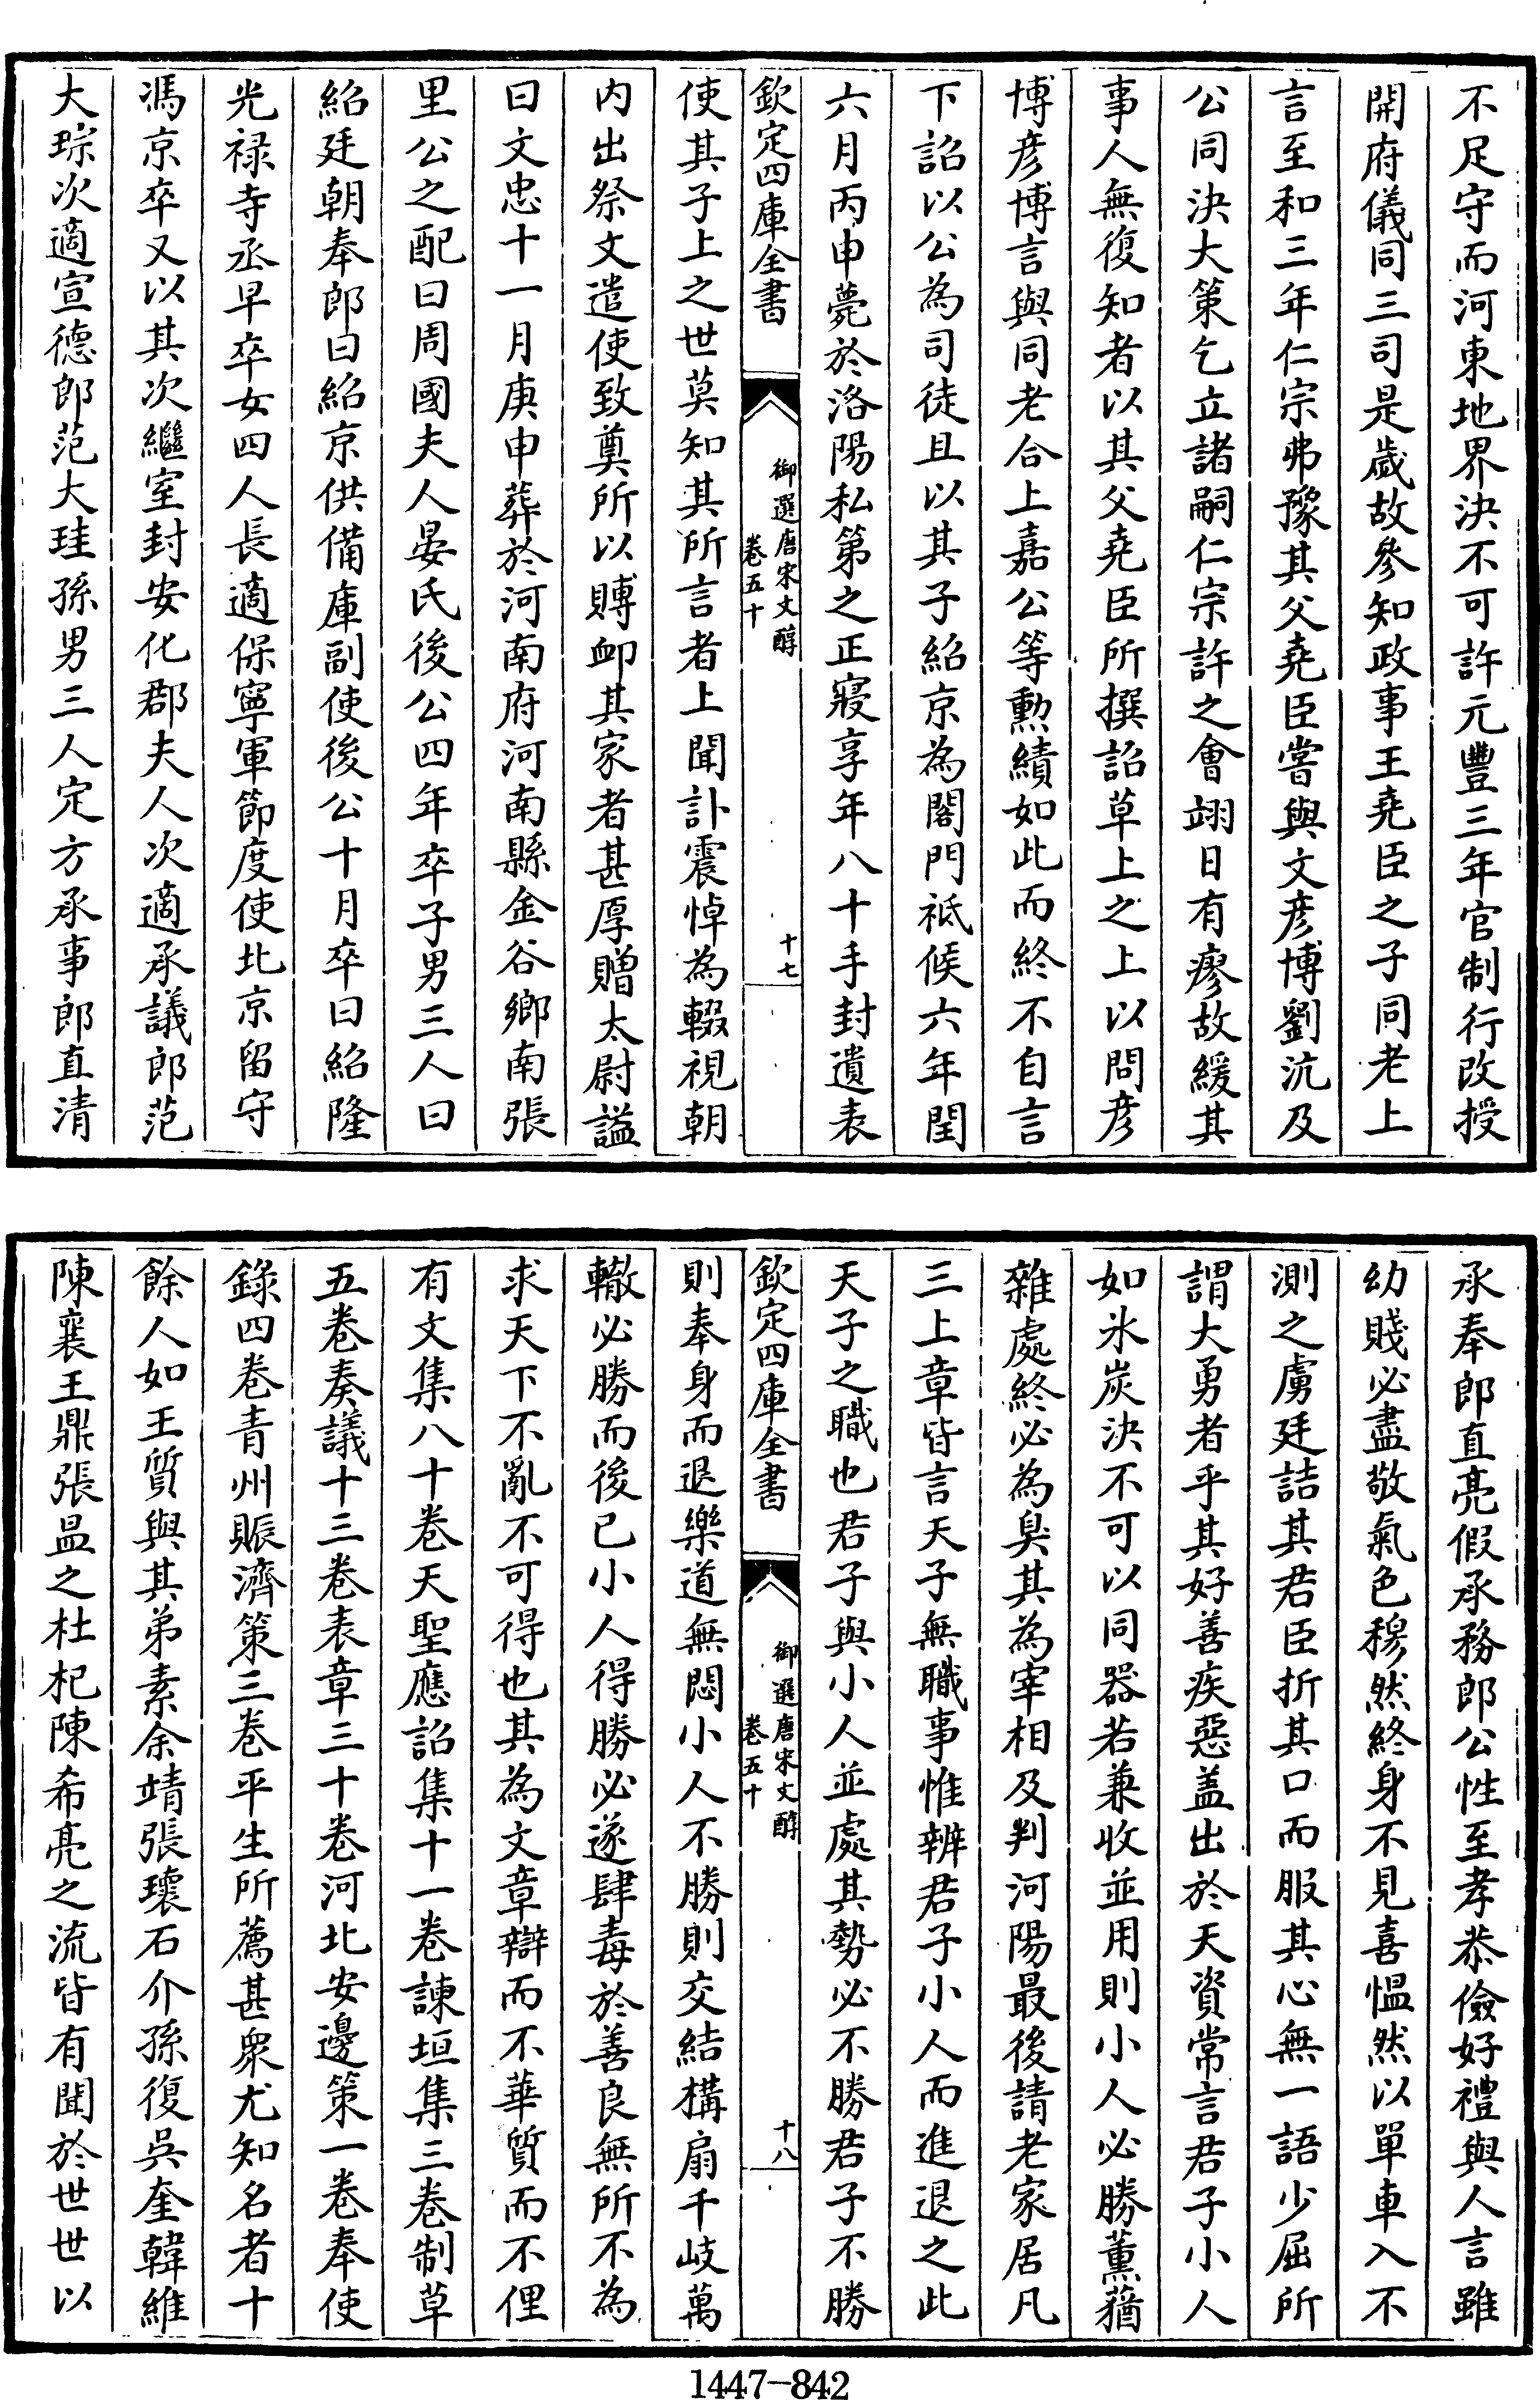 不足守而河東地界決不可許元豐三年官制行改授
開府儀同三司是歲故參知政事王堯臣之子同老上
言至和三年仁宗弗豫其父堯臣嘗與文彥博劉沆及
公同決大策乞立諸嗣仁宗許之會翊日有瘳故緩其
事人無復知者以其父堯臣所撰詔草上之上以問彥
博彥博言與同老合上嘉公等勲績如此而終不自言
下詔以公為司徒且以其子紹京為閤門祗候六年閏
六月丙申薨於洛陽私第之正寢享年八十手封遺表
欽定四庫全書
御選唐宋文醇
卷五十
十七
使其子上之世莫知其所言者上聞訃震悼為輟視朝
内出祭文遣使致奠所以賻卹其家者甚厚贈太尉謚
曰文忠十一月庚申葬於河南府河南縣金谷鄉南張
里公之配曰周國夫人晏氏後公四年卒子男三人曰
紹廷朝奉郎曰紹京供備庫副使後公十月卒曰紹隆
光禄寺丞早卒女四人長適保寧軍節度使北京留守
馮京卒又以其次繼室封安化郡夫人次適承議郎范
大琮次適宣德郎范大珪孫男三人定方承事郎直清
承奉郎直亮假承務郎公性至孝恭儉好禮與人言雖
幼賤必盡敬氣色穆然終身不見喜愠然以單車入不
測之虜廷詰其君臣折其口而服其心無一語少屈所
謂大勇者乎其好善疾惡盖出於天資常言君子小人
如氷炭決不可以同器若兼收並用則小人必勝薰蕕
雜處終必為臭其為宰相及判河陽最後請老家居凡
三上章皆言天子無職事惟辨君子小人而進退之此
天子之職也君子與小人並處其勢必不勝君子不勝
欽定四庫全書
御選唐宋文醇
卷五十
十八
則奉身而退樂道無悶小人不勝則交結構扇千岐萬
轍必勝而後已小人得勝必遂肆毒於善良無所不為
求天下不亂不可得也其為文章辯而不華質而不俚
有文集八十卷天聖應詔集十一卷諫垣集三卷制草
五卷奏議十三卷表章三十卷河北安邊策一卷奉使
錄四卷青州賑濟策三卷平生所薦甚衆尤知名者十
餘人如王質與其弟素余靖張瓌石介孫復吳奎韓維
陳襄王鼎張昷之杜杞陳希亮之流皆有聞於世世以
1447-842